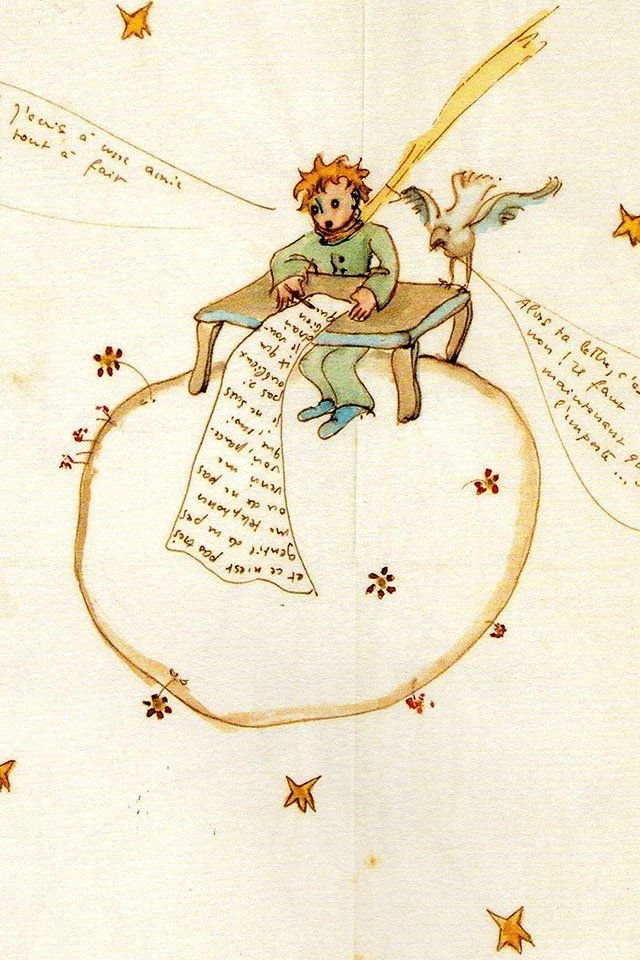 j'écris à une amie
tout à fait
et ce n'est pas très
gentil de ne pas
me téléphoner
ou de ne pas
venir me
voir,
que, moi,
je ne suis
pas
oublieux
et que
je vou-
bien
Alors ta lettre, c'e
non ! il faut
maintenant qu
l'emporte...